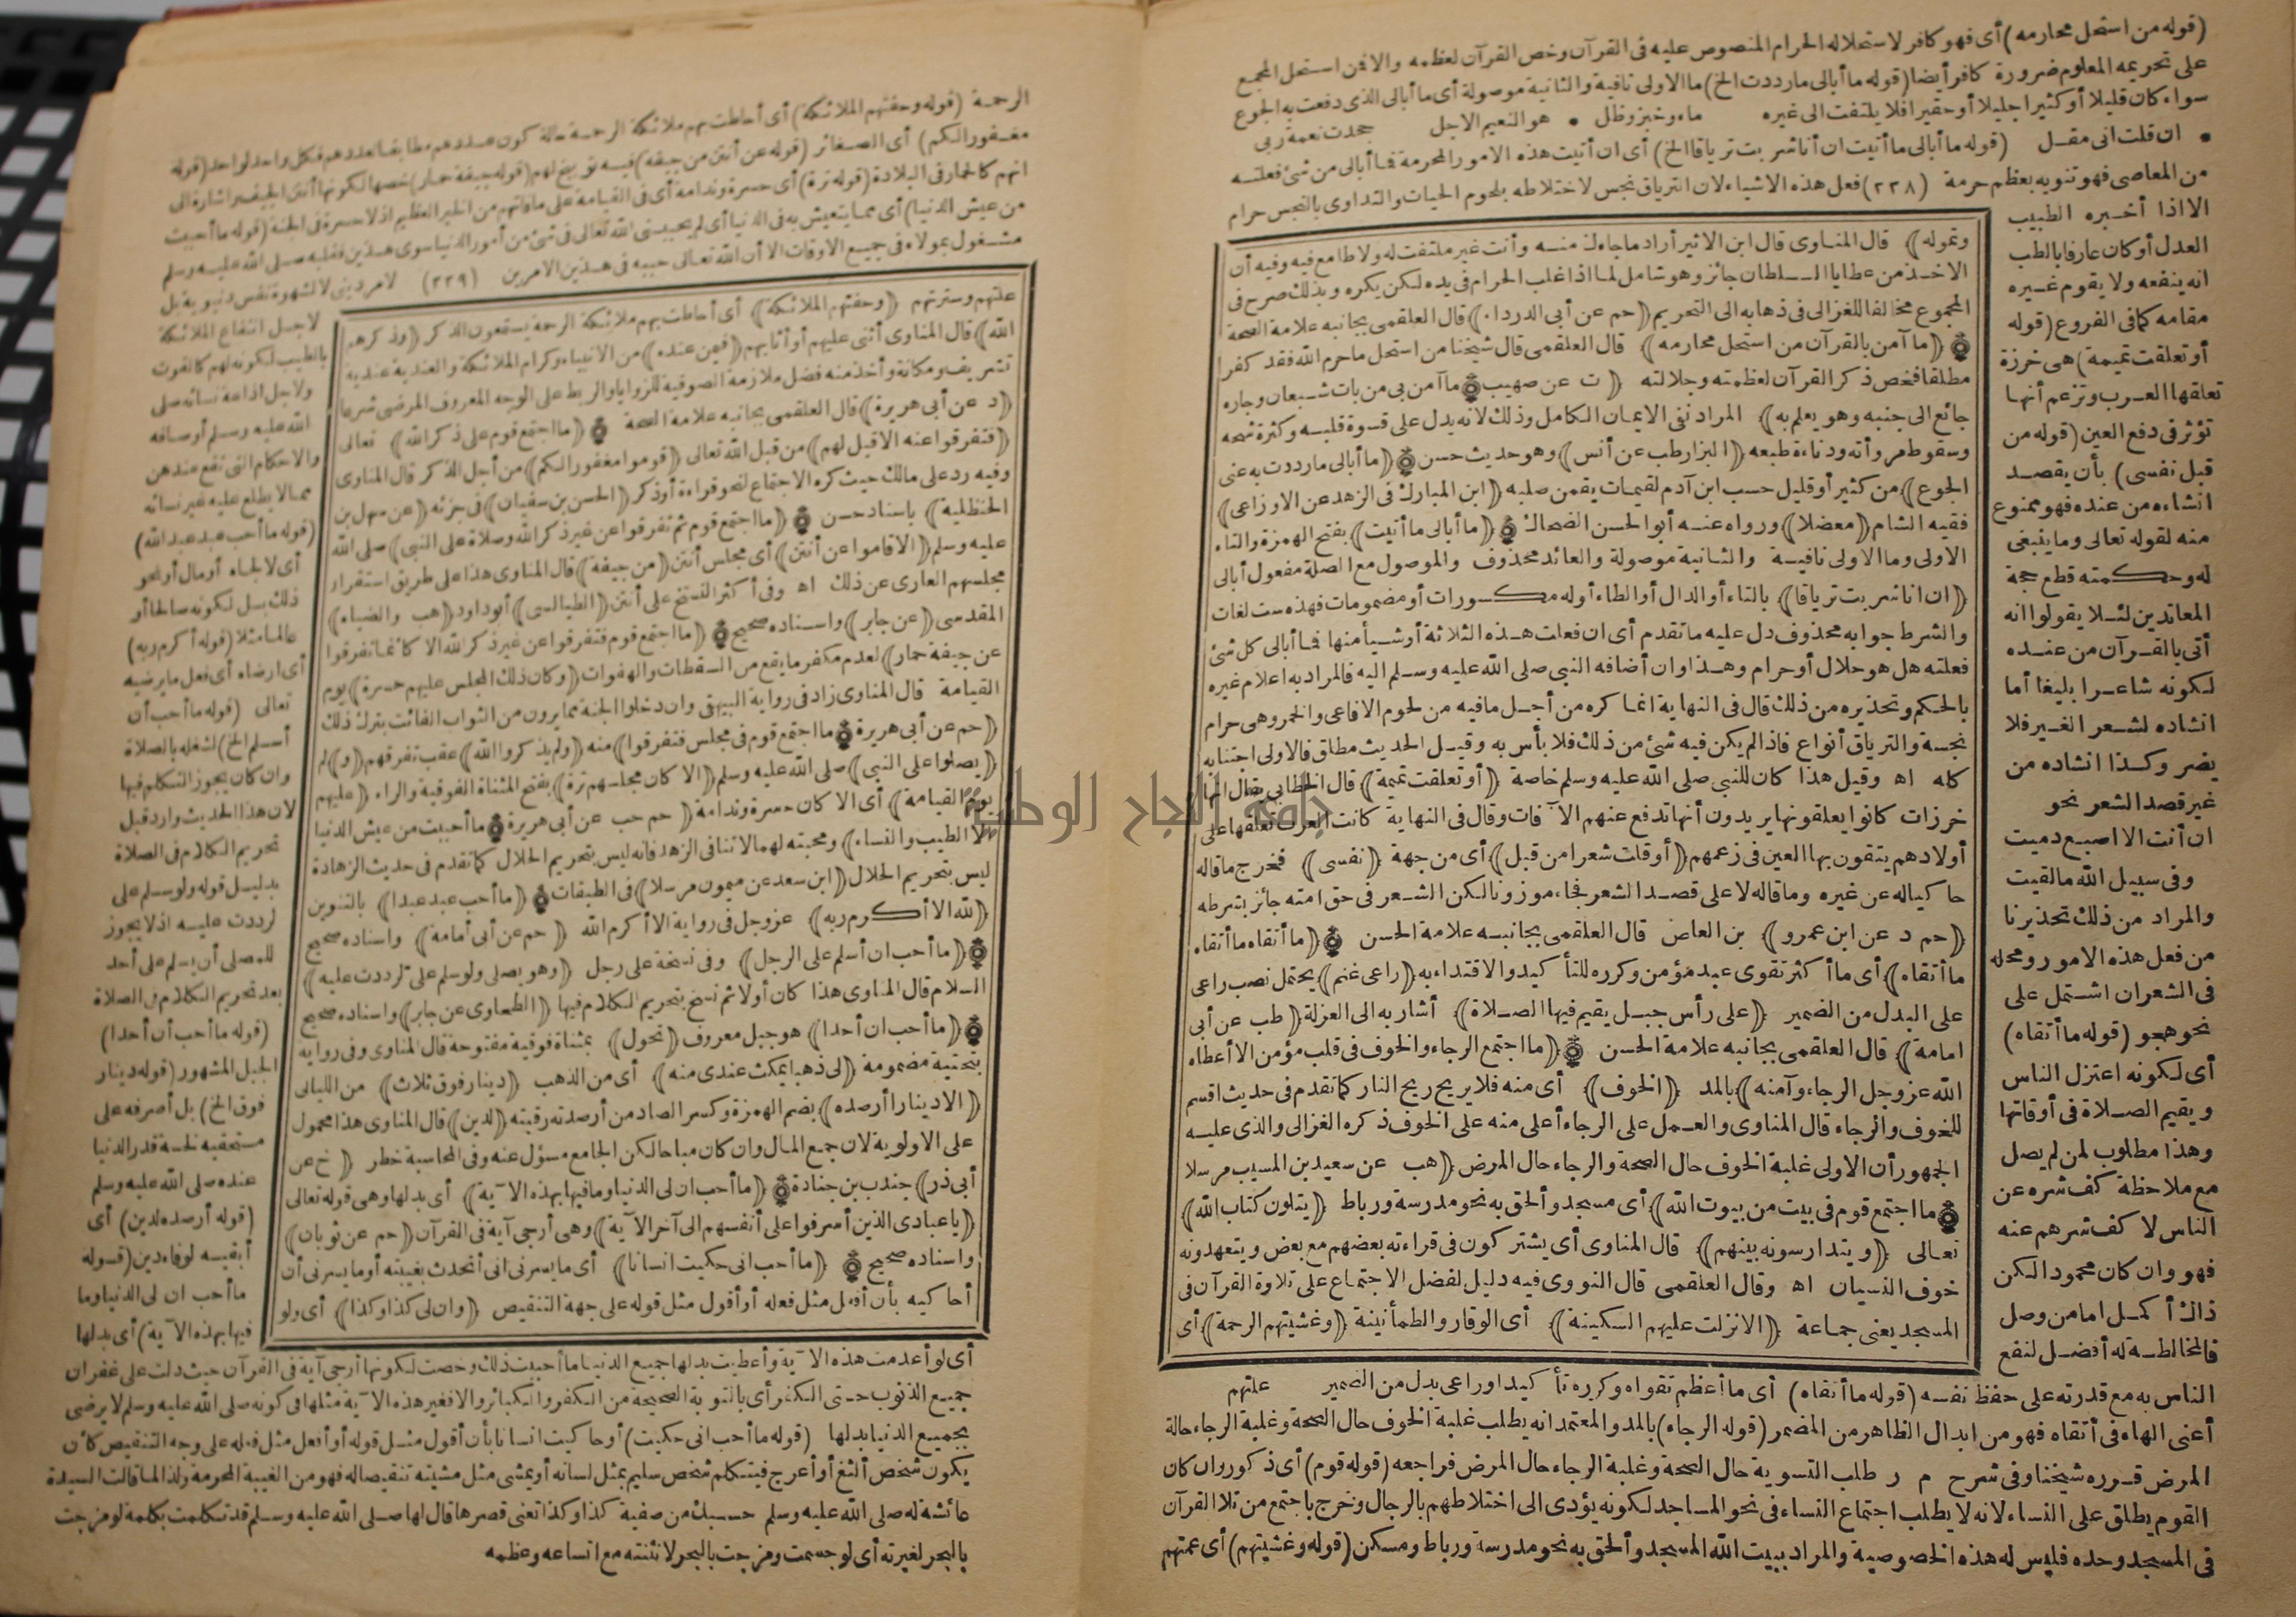 (قوله من استحل محارمه) أى فهو كافر لاستحلاله الحرام المنصوص عليه فى القرآن وخص القرآن لعظمه والا فمن استحل المجمع
على تحريمه المعلوم ضرورة كافر أيضا (قوله ما أبالى مارددت الخ) ما الاولى نافية والثانية موصولة أى ما أبالى الذى دفعت به الجوع
سواء كان قليلا أو كثيرا جليلا أو حقيرا فلا يلتفت الى غيره ماء وخبز وظل * هو النعيم الاجل جحدت نعمة ربى
* ان قلت انى مقـل (قوله ما أبالى ما أتيت ان أنا شربت ترياقا الخ) أى ان أتيت هذه الامور المحرمة فما أبالى من شئ فعلته
من المعاصى فهو تنويه بعظم حرمة (٢٣٨) فعل هذه الاشياء لان الترياق نجس لاختلاطه بلحوم الحيات والتداوى بالنجس حرام
الا اذا أخبره الطبيب
العدل أو كان عارفا بالطب
انه ينفعه ولا يقوم غيره
مقامه كما فى الفروع (قوله
أو تعلقت تميمة) هى خرزة
تعلقها العرب وتزعم أنها
تؤثر فى دفع العين (قوله من
قبل نفسى) بأن يقصد
انشاءه من عنده فهو ممنوع
منه لقوله تعالى وما ينبغى
له وحكمته قطع حجة
المعاندين لئلا يقولوا انه
أتى بالقرآن من عنده
لكونه شاعرا بليغا أما
انشاده لشعر الغير فلا
يضر وكذا انشاده من
غير قصد الشعر نحو
ان أنت الا اصبع دميت
وفى سبيل الله مالقيت
والمراد من ذلك تحذيرنا
من فعل هذه الامور ومحله
فى الشعر ان اشتمل على
نحو هجو (قوله ما أتقاه)
أى لكونه اعتزل الناس
ويقيم الصلاة فى أوقاتها
وهذا مطلوب لمن لم يصل
مع ملاحظة كف شره عن
الناس لا كف شرهم عنه
فهو وان كان محمودا لكن
ذاك أكمل اما من وصل
فالمخالطة له أفضل لنفع
وتموله) قال المناوى قال ابن الاثير أراد ما جاءك منه وأنت غير ملتفت له ولا طامع فيه وفيه أن
الاخذ من عطايا السلطان جائز وهو شامل لما اذا غلب الحرام فى يده لكن يكره وبذلك صرح فى
المجموع مخالفا للغزالى فى ذهابه الى التحريم (حم عن أبى الدرداء) قال العلقمى بجانبه علامة الصحة
(ما آمن بالقرآن من استحل محارمه) قال العلقمى قال شيخنا من استحل ما حرم الله فقد كفر
مطلقا فخص ذكر القرآن لعظمته وجلالته (ت عن صهيب) ما آمن بى من بات شبعان وجاره
جائع الى جنبه وهو يعلم به) المراد نفى الايمان الكامل وذلك لانه يدل على قسوة قلبه وكثرة شحه
وسقوط مروأته ودناءة طبعه (البزار طب عن أنس) وهو حديث حسن (ما أبالى مارددت به عنى
الجوع) من كثير أو قليل حسب ابن آدم لقيمات يقمن صلبه (ابن المبارك فى الزهد عن الاوزاعى)
فقيه الشام (معضلا) ورواه عنه أبو الحسن الضحاك (ما أبالى ما أتيت) بفتح الهمزة والتاء
الاولى وما الاولى نافية والثانية موصولة والعائد محذوف والموصول مع الصلة مفعول أبالى
(ان انا شربت ترياقا) بالتاء أو الدال أو الطاء أوله مكسورات أو مضمومات فهذه ست لغات
والشرط جوابه محذوف دل عليه ما تقدم أى ان فعلت هذه الثلاثة أو شيأ منها فما أبالى كل شئ
فعلته هل هو حلال أو حرام وهذا وان أضافه النبى صلى الله عليه وسلم اليه فالمراد به اعلام غيره
بالحكم وتحذيره من ذلك قال فى النهاية انما كره من أجل ما فيه من لحوم الافاعى والخمر وهى حرام
نجسة والترياق أنواع فاذا لم يكن فيه شئ من ذلك فلا بأس به وقيل الحديث مطلق فالاولى اجتنابه
كله اه وقيل هذا كان للنبى صلى الله عليه وسلم خاصة (أو تعلقت تميمة) قال الخطابى يقال انها
خرزات كانوا يعلقونها يريدون أنها تدفع عنهم الآفات وقال فى النهاية كانت العرب تعلقها على
أولادهم يتقون بها العين فى زعمهم (أو قلت شعرا من قبل) أى من جهة (نفسى) فخرج ما قاله
حاكيا له عن غيره وما قاله لا على قصد الشعر فجاء موزونا لكن الشعر فى حق امته جائز بشرطه
(حم د عن ابن عمرو) بن العاص قال العلقمى بجانبه علامة الحسن (ما أتقاه ما أتقاه
ما أتقاه) أى ما أكثر تقوى عبد مؤمن وكرره للتأكيد والاقتداء به (راعى غنم) يحتمل نصب راعى
على البدل من الضمير (على رأس جبل يقيم فيها الصلاة) أشار به الى العزلة (طب عن أبى
امامة) قال العلقمى بجانبه علامة الحسن (ما اجتمع الرجاء والخوف فى قلب مؤمن الا أعطاه
الله عز وجل الرجاء وآمنه) بالمد (الخوف) أى منه فلا يريح ريح النار كما تقدم فى حديث اقسم
للخوف والرجاء قال المناوى والعمل على الرجاء أعلى منه على الخوف ذكره الغزالى والذى عليه
الجمهور أن الاولى غلبة الخوف حال الصحة والرجاء حال المرض (هب عن سعيد بن المسيب مرسلا
ما اجتمع قوم فى بيت من بيوت الله) أى مسجد وألحق به نحو مدرسة ورباط (يتلون كتاب الله)
تعالى (ويتدارسونه بينهم) قال المناوى أى يشتركون فى قراءته بعضهم مع بعض ويتعهدونه
خوف النسيان اه وقال العلقمى قال النووى فيه دليل لفضل الاجتماع على تلاوة القرآن فى
المسجد يعنى جماعة (الا نزلت عليهم السكينة) أى الوقار والطمأنينة (وغشيتهم الرحمة) أى
الناس به مع قدرته على حفظ نفسه (قوله ما أتقاه) أى ما أعظم تقواه وكرره تأكيدا وراعى بدل من الضمير علتهم
أعنى الهاء فى أتقاه فهو من ابدال الظاهر من المضمر (قوله الرجاء) بالمد والمعتمد انه يطلب غلبة الخوف حال الصحة وغلبة الرجاء حالة
المرض قرره شيخنا وفى شرح م ر طلب التسوية حال الصحة وغلبة الرجاء حال المرض فراجعه (قوله قوم) أى ذكور وان كان
القوم يطلق على النساء لانه لا يطلب اجتماع النساء فى نحو المساجد لكونه يؤدى الى اختلاطهم بالرجال وخرج باجتمع من تلا القرآن
فى المسجد وحده فليس له هذه الخصوصية والمراد ببيت الله المسجد وألحق به نحو مدرسة ورباط ومسكن (قوله وغشيتهم) أى عمتهم
الرحمة (قوله وحفتهم الملائكة) أى أحاطت بهم ملائكة الرحمة حالة كون عددهم مطابقا لعددهم فكل واحد لواحد (قوله
مغفورا لكم) أى الصغائر (قوله عن أنتن من جيفة) فيه توبيخ لهم (قوله جيفة حمار) خصها لكونها أنتن الجيف واشارة الى
انهم كالحمار فى البلادة (قوله ترة) أى حسرة وندامة أى فى القيامة على ما فاتهم من الخير العظيم اذ لا حسرة فى الجنة (قوله ما أحببت
من عيش الدنيا) أى مما يتعيش به فى الدنيا أى لم يحببنى الله تعالى فى شئ من أمور الدنيا سوى هذين فقلبه صلى الله عليه وسلم
مشغول بمولاه فى جميع الاوقات الا أن الله تعالى حببه فى هذين الامرين (٢٣٩) لامر دينى لا لشهوة نفس دنيوية بل
لاجل انتفاع الملائكة
بالطيب لكونه لهم كالقوت
ولاجل اذاعة نسائه صلى
الله عليه وسلم أوصافه
والاحكام التى تقع عندهن
مما لا يطلع عليه غير نسائه
(قوله ما أحب عبد عبدا لله)
أى لا لجاه أو مال أو نحو
ذلك بل لكونه صالحا أو
عالما مثلا (قوله أكرم ربه)
أى ارضاه أى فعل ما يرضيه
تعالى (قوله ما أحب أن
أسلم الخ) لشغله بالصلاة
وان كان يجوز التكلم فيها
لان هذا الحديث وارد قبل
تحريم الكلام فى الصلاة
بدليل قوله ولو سلم على
لرددت عليه اذ لا يجوز
للمصلى أن يسلم على أحد
بعد تحريم الكلام فى الصلاة
(قوله ما أحب أن أحدا)
الجبل المشهور (قوله دينار
فوق الخ) بل أصرفه على
مستحقيه لخسة قدر الدنيا
عنده صلى الله عليه وسلم
(قوله أرصده لدين) أى
أبقيه لوفاء دين (قوله
ما أحب ان لى الدنيا وما
فيها بهذه الآية) أى بدلها
علتهم وسترتهم (وحفتهم الملائكة) أى أحاطت بهم ملائكة الرحمة يستمعون الذكر (وذكرهم
الله) قال المناوى أثنى عليهم أو أثابهم (فيمن عنده) من الانبياء وكرام الملائكة والعندية عندية
تشريف ومكانة وأخذ منه فضل ملازمة الصوفية للزوايا والربط على الوجه المعروف المرضى شرعا
(د عن أبى هريرة) قال العلقمى بجانبه علامة الصحة (ما اجتمع قوم على ذكر الله) تعالى
(فتفرقوا عنه الا قيل لهم) من قبل الله تعالى (قوموا مغفورا لكم) من أجل الذكر قال المناوى
وفيه رد على مالك حيث كره الاجتماع لنحو قراءة أو ذكر (الحسن بن سفيان) فى جزئه (عن سهل بن
الحنظلية) باسناد حسن (ما اجتمع قوم ثم تفرقوا عن غير ذكر الله وصلاة على النبى) صلى الله
عليه وسلم (الا قاموا عن أنتن) أى مجلس أنتن (من جيفة) قال المناوى هذا على طريق استقرار
مجلسهم العارى عن ذلك اه وفى أكثر النسخ على أنتن (الطيالسى) أبو داود (هب والضياء)
المقدسى (عن جابر) واسناده صحيح (ما اجتمع قوم فتفرقوا عن غير ذكر الله الا كانما تفرقوا
عن جيفة حمار) لعدم مكفر ما يقع من السقطات والهفوات (وكان ذلك المجلس عليهم حسرة) يوم
القيامة قال المناوى زاد فى رواية البيهقى وان دخلوا الجنة مما يرون من الثواب الفائت بترك ذلك
(حم عن أبى هريرة) ما اجتمع قوم فى مجلس فتفرقوا) منه (ولم يذكروا الله) عقب تفرقهم (و) لم
(يصلوا على النبى) صلى الله عليه وسلم (الا كان مجلسهم ترة) بفتح المثناة الفوقية والراء (عليهم
يوم القيامة) أى الا كان حسرة وندامة (حم حب عن أبى هريرة) ما أحببت من عيش الدنيا
الا الطيب والنساء) ومحبته لهما لا تنافى الزهد فانه ليس بتحريم الحلال كما تقدم فى حديث الزهادة
ليس بتحريم الحلال (ابن سعد عن ميمون مرسلا) فى الطبقات (ما أحب عبد عبدا) بالتنوين
(لله الا أكرم ربه) عز وجل فى رواية الا أكرم الله (حم عن أبى أمامة) واسناده صحيح
(ما أحب ان أسلم على الرجل) وفى نسخة على رجل (وهو يصلى ولو سلم على لرددت عليه)
السلام قال المناوى هذا كان أولا ثم نسخ بتحريم الكلام فيها (الطحاوى عن جابر) واسناده صحيح
(ما أحب ان أحدا) هو جبل معروف (تحول) بمثناة فوقية مفتوحة قال المناوى وفى رواية
بتحتية مضمومة (لى ذهبا يمكث عندى منه) أى من الذهب (دينار فوق ثلاث) من الليالى
(الا دينارا أرصده) بضم الهمزة وكسر الصاد من أرصدته رقبته (لدين) قال المناوى هذا محمول
على الاولوية لان جمع المال وان كان مباحا لكن الجامع مسؤل عنه وفى المحاسبة خطر (خ عن
أبى ذر) جندب بن جنادة (ما أحب ان لى الدنيا وما فيها بهذه الآية) أى بدلها وهى قوله تعالى
(يا عبادى الذين أسرفوا على أنفسهم الى آخر الآية) وهى أرجى آية فى القرآن (حم عن ثوبان)
واسناده صحيح (ما أحب انى حكيت انسانا) أى ما يسرنى انى أتحدث بغيبته أو ما يسرنى أن
أحاكيه بأن أفعل مثل فعله أو أقول مثل قوله على جهة التنقيص (وان لى كذا وكذا) أى ولو
أى لو أعدمت هذه الآية وأعطيت بدلها جميع الدنيا ما أحببت ذلك وخصت لكونها أرجى آية فى القرآن حيث دلت على غفران
جميع الذنوب حتى الكفر أى بالتوبة الصحيحة من الكفر والكبائر والا فغير هذه الآية مثلها فى كونه صلى الله عليه وسلم لا يرضى
بجميع الدنيا بدلها (قوله ما أحب انى حكيت) أو حاكيت انسانا بأن أقول مثل قوله أو أفعل مثل فعله على وجه التنقيص كأن
يكون شخص ألثغ أو أعرج فيتكلم شخص سليم بمثل لسانه أو يمشى مثل مشيته تنقيصا له فهو من الغيبة المحرمة ولذا لما قالت السيدة
عائشة له صلى الله عليه وسلم حسبك من صفية كذا وكذا تعنى قصرها قال لها صلى الله عليه وسلم قد تكلمت بكلمة لو مزجت
بالبحر لغيرته أى لو جسمت ومزجت بالبحر لانتنته مع اتساعه وعظمه
جامعة النجاح الوطنية